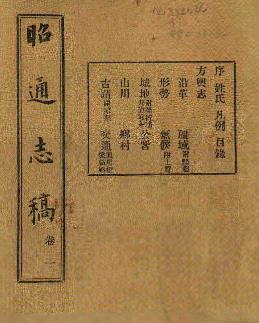 昭通志稿 卷一
序 姓氏 凡例 目錄
方輿志
沿革 疆域
形勢 氣候
城池 公署
山川 鄉村
古蹟 交通